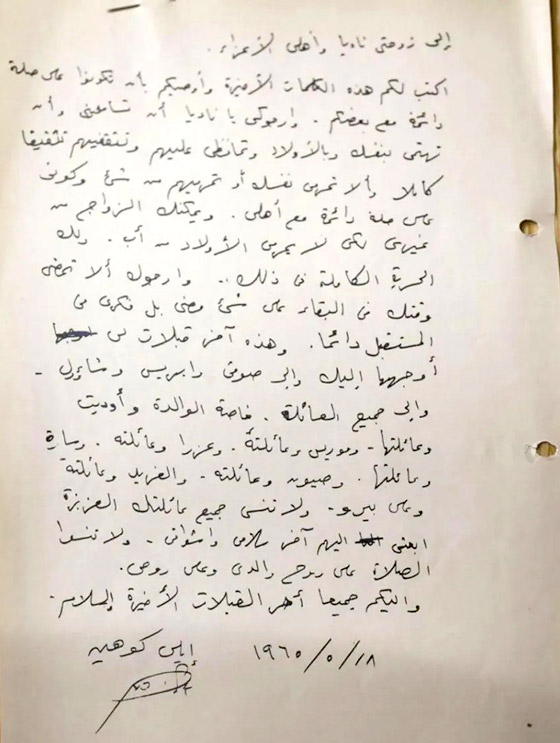 إلى زوجتي ناديا وأهلى الأعزاء.
اكتب لكم هذه الكلمات الأخيرة وأرجوكم بأن تكونوا على صلة
دائمة مع بعضكم. وارجوكى يا ناديا أن تسامحينى وأن
تهتمى بنفسك وبالأولاد وتحافظى عليهم وتثقفيهم تثقيفا
كاملا وألا تحرمى نفسك أو تحرميهم من شئ وكونى
على صلة دائمة مع أهلى. ويمكنك الزواج من
غيرى لكى لا يحرم الأولاد من أب. ولك
الحرية الكاملة فى ذلك.. وارجوك ألا تمضى
وقتك فى البكاء على شئ مضى بل فكرى فى
المستقبل دائما. وهذه آخر قبلات لى
أوجهها إليك وإلى صوفى وايريس وشاؤول -
وإلى جميع العائلة. خاصة الوالدة وأوديت
وعائلتها - وموريس وعائلته. وعزرا وعائلته. وسارة
وعائلتها. وصيون وعائلته. والفريد وعائلته
ولا تنسى جميع عائلتك العزيزة
ابعثى اليهم آخر سلامى واشواقى - ولا تنسوا
الصلاة على روح والدى وعلى روحى.
واليكم جميعا أخر القبلات الأخيرة والسلام.
١٩٦٥/٥/١٨ إيلى كوهين